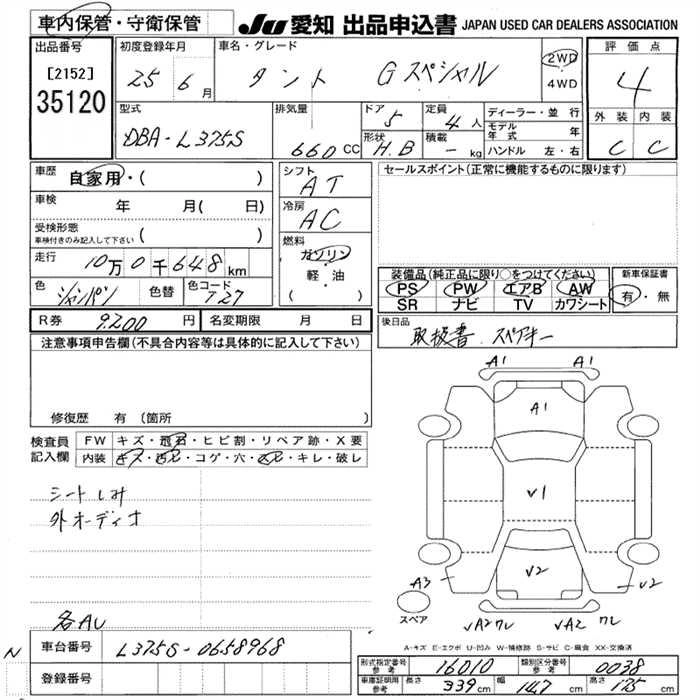 車内保管・守衛保管
JU 愛知 出品申込書 JAPAN USED CAR DEALERS ASSOCIATION
出品番号
[2152]
35120
初度登録年月
25年6月
車名・グレード
タント Gスペシャル
2WD
・
4WD
評価点
4
外装 内装
C C
型式
DBA-L375S
排気量
660 CC
ドア
5
形状
H.B
定員
4人
積載
- kg
ディーラー・並行
モデル年式 年
ハンドル 左・右
車歴
自家用・( )
車検
年 月( 日)
受検形態
車検付きのみ記入して下さい ( )
走行
10万0千648km
色
シャンパン
色替
色コード
T27
シフト
AT
冷房
AC
燃料
ガソリン
軽・油
( )
セールスポイント(正常に機能するものに限ります)
装備品(純正品に限り○をつけてください)
PS PW エアB AW
SR ナビ TV カワシート
新車保証書
有・無
R券 9200円
名変期限 月 日
後日品
取扱書. スペアキー
注意事項申告欄(不具合内容等は具体的に記入して下さい)
修復歴 有 (箇所 )
検査員記入欄
FW キズ・飛石・ヒビ割・リペア跡・X要
内装 キズ・汚れ・コゲ・穴・・キレ・破レ
シートしみ
外オーディオ
各AU
A1 A1
A1
V1
V2
A3
V2
スペア
VA2 ワレ VA2 ワレ
A-キズ E-エクボ U-凹み W-補修跡 S-サビ C-腐食 XX-交換済
N
車台番号 L375S-0658968
登録番号
型式指定番号 参考 16010
類別区分番号 参考 0038
車庫証明用 参考 長さ 339cm 幅 147cm 高さ 175cm